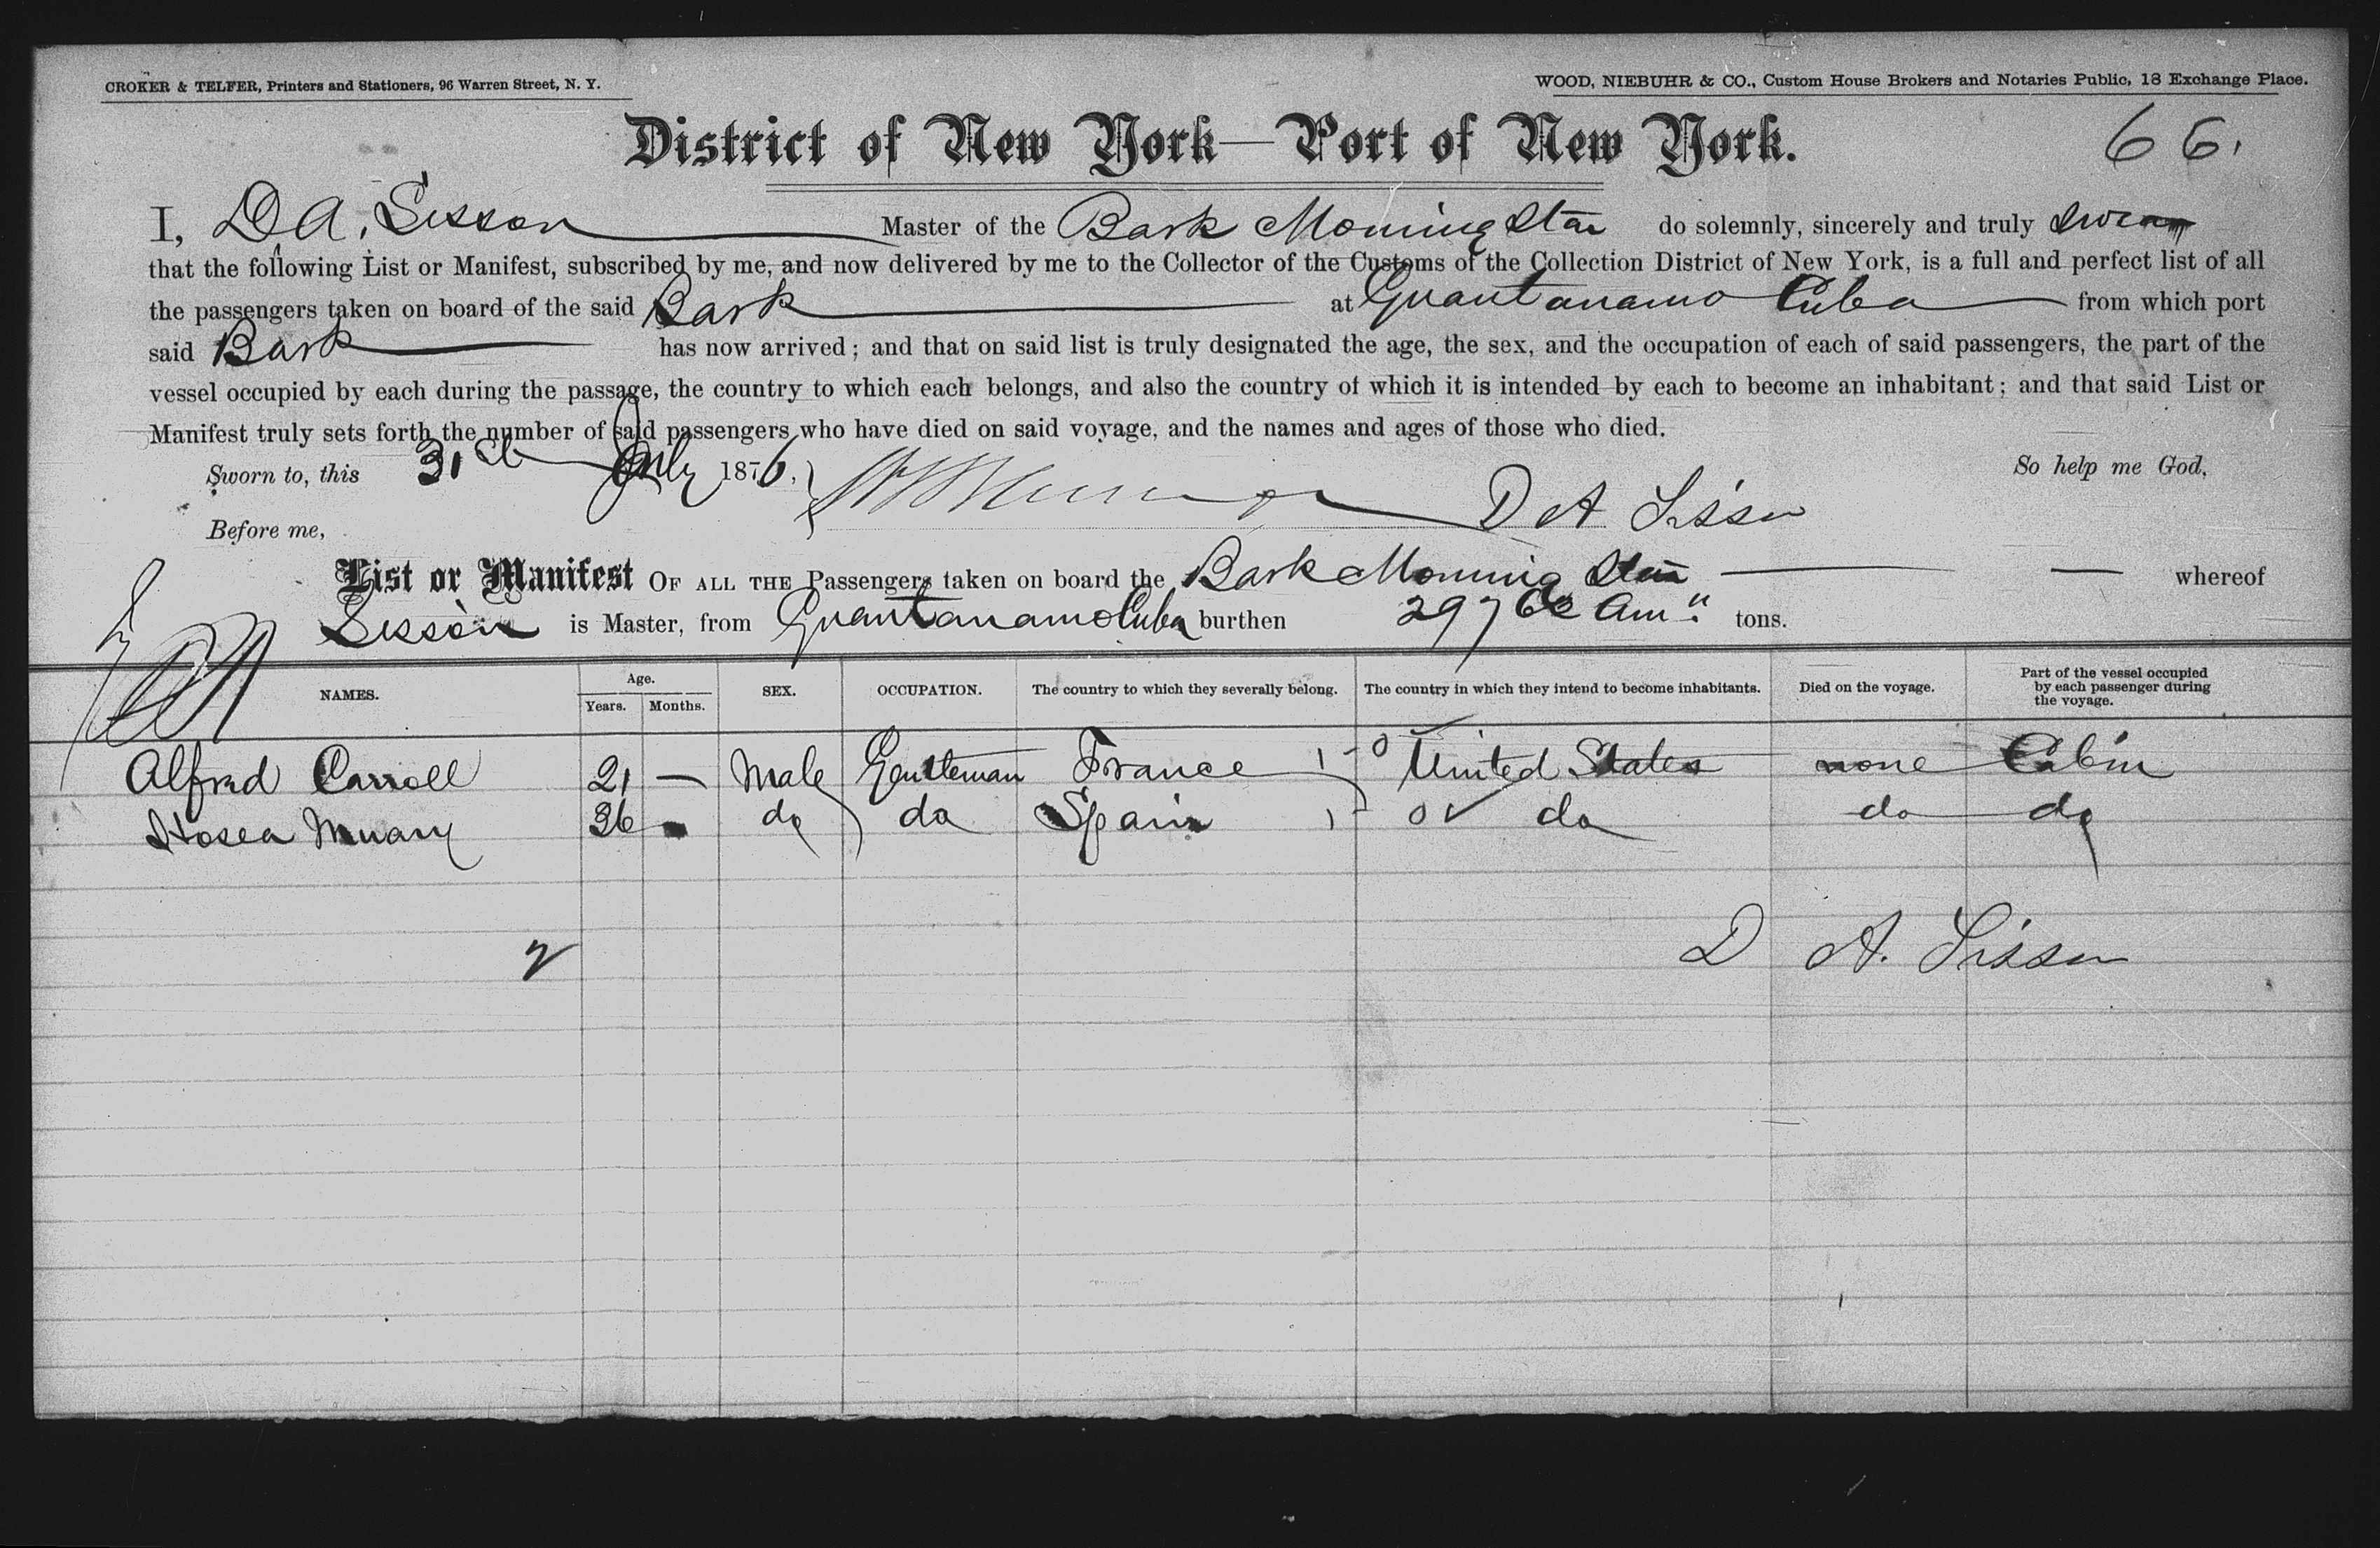 CROKER & TELFER, Printers and Stationers, 96 Warren Street, N. Y.
WOOD, NIEBUHR & CO., Custom House Brokers and Notaries Public, 18 Exchange Place.
District of New York—Port of New York.
66.
I, D A. Sisson Master of the Bark Morning Star do solemnly, sincerely and truly swear
that the following List or Manifest, subscribed by me, and now delivered by me to the Collector of the Customs of the Collection District of New York, is a full and perfect list of all
the passengers taken on board of the said Bark at Guantanamo Cuba from which port
said Bark has now arrived; and that on said list is truly designated the age, the sex, and the occupation of each of said passengers, the part of the
vessel occupied by each during the passage, the country to which each belongs, and also the country of which it is intended by each to become an inhabitant; and that said List or
Manifest truly sets forth the number of said passengers who have died on said voyage, and the names and ages of those who died.
Sworn to, this 31st July 1876. So help me God,
D A Sisson
Before me,
List or Manifest OF ALL THE Passengers taken on board the Bark Morning Star whereof
Sisson is Master, from Guantanamo Cuba burthen 297 tons.
NAMES. Age. Years. Months. SEX. OCCUPATION. The country to which they severally belong. The country in which they intend to become inhabitants. Died on the voyage. Part of the vessel occupied by each passenger during the voyage.
Alfred Carroll 21 — Male Gentleman France 1 - 0 United States none Cabin
Hosea 36 do do Spain 1 - 0 do do do
2
D A. Sisson